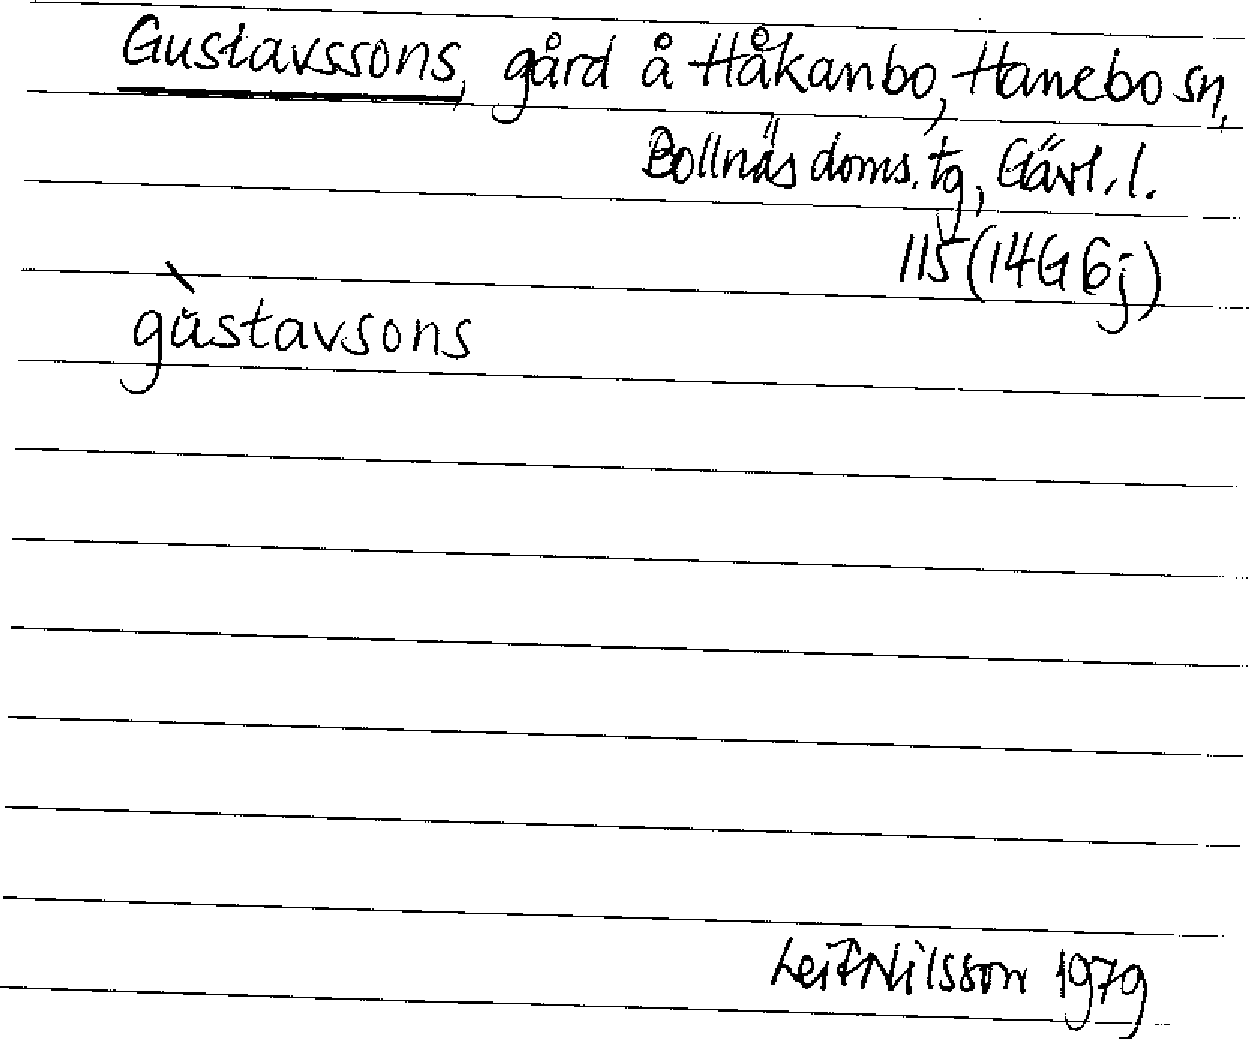 Gustavssons, gård å Håkanbo, Hanebo sn,
Bollnäs doms. tg, Gävl. l.
115 (14G 6j)
gùstavsons
Leif Nilsson 1979